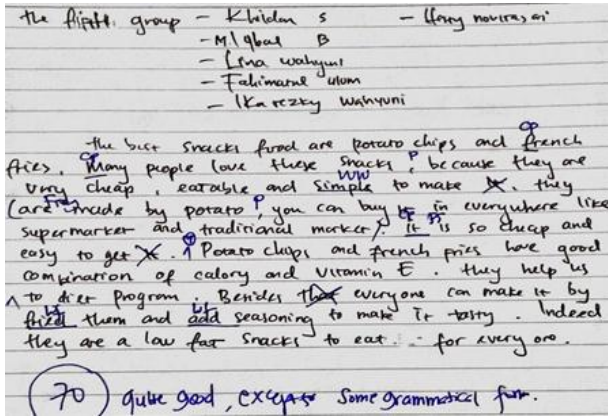 the fifth group - Khidan s - Herry novitasari
- M Iqbal B
- Lina wahyuni
- Fahimatul ulum
- Ika rezky wahyuni
the best snacks food are potato chips and french
fries. Many people love these snacks, because they are
very cheap, eatable and simple to make it. they
are made by potato, you can buy it in everywhere like
supermarket and traditional market, it is so cheap and
easy to get it. Potato chips and french fries have good
combination of calory and vitamin E. they help us
to diet program. Besides that everyone can make it by
fried them and add seasoning to make it tasty. Indeed
they are a low fat snacks to eat for every one.
70 quite good, except some grammatical form.